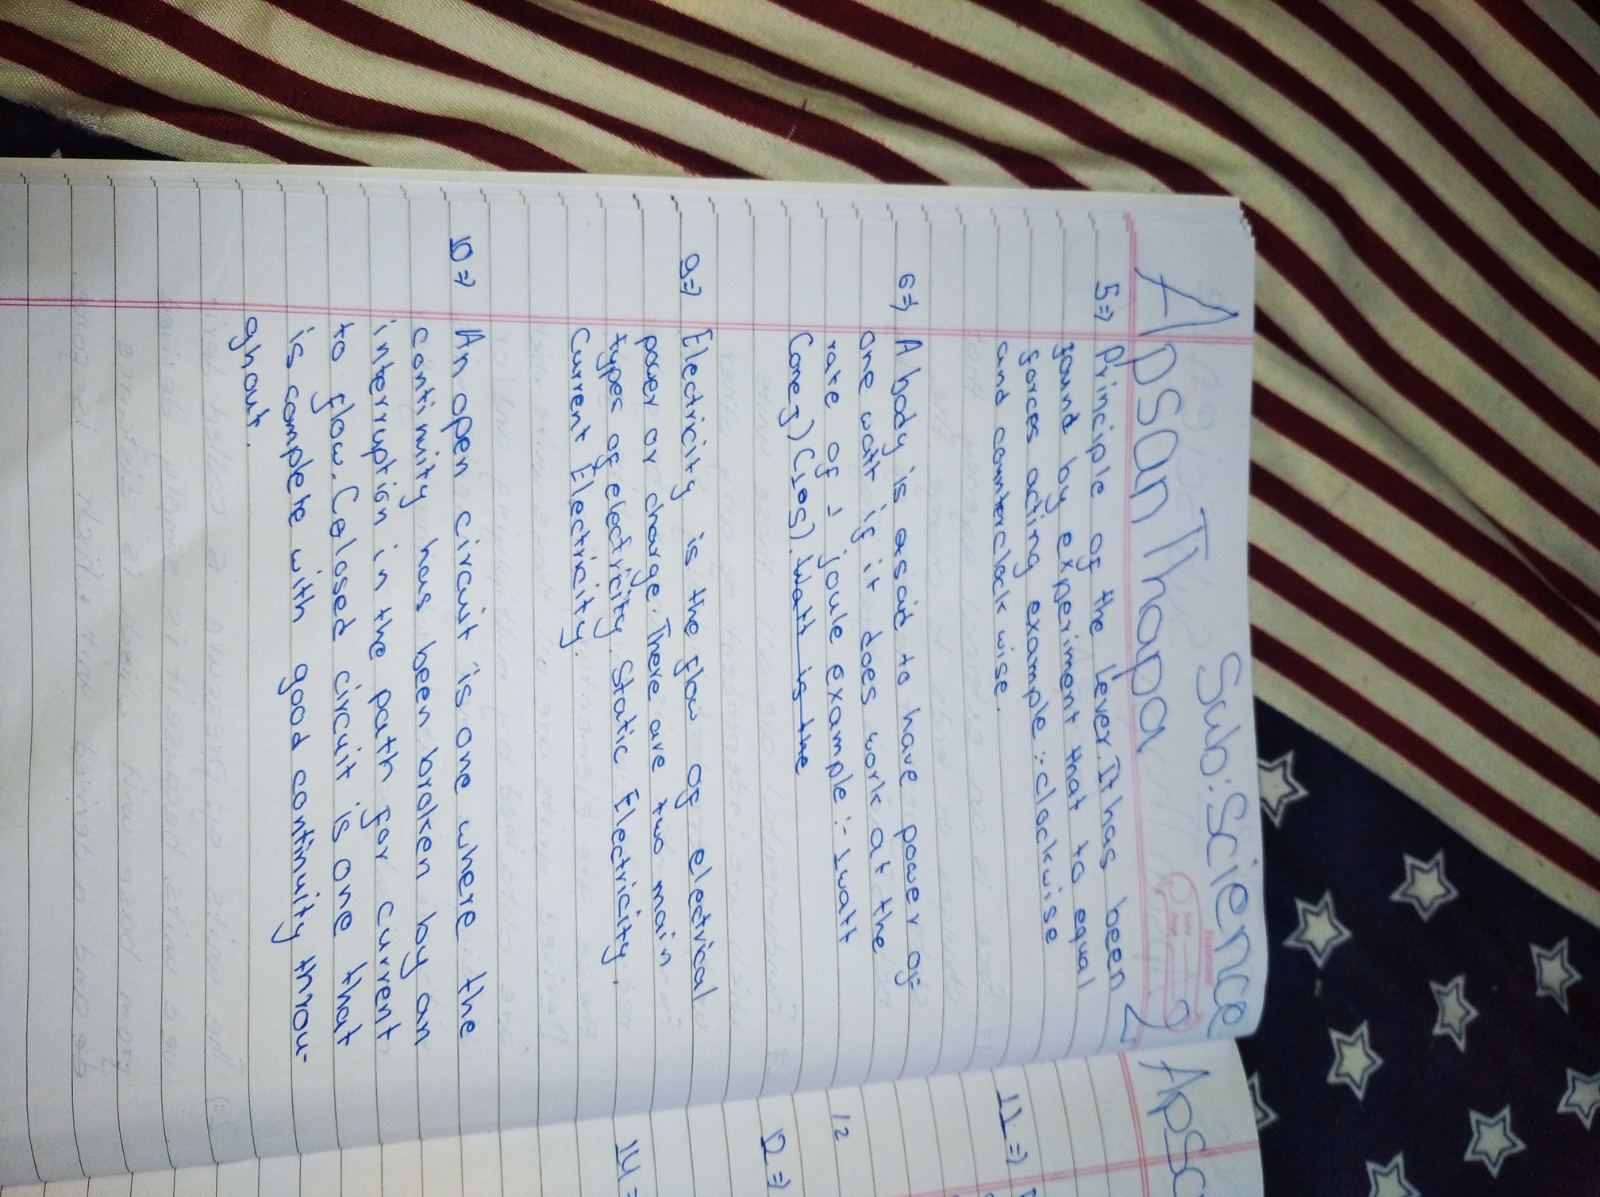 Sub: Science
Apsan Thapa
5=> Principle of the Lever. It has been
found by experiment that to equal
forces acting example :- clockwise
and counterclock wise.
6=> A body is asaid to have power of
one watt if it does work at the
rate of 1 joule example :- 1 watt
Cone J) (10s). Watt is the
9=> Electricity is the flow of electrical
power or charge. There are two main
types of electricity. Static Electricity,
Current Electricity.
10=> An open circuit is one where the
continuity has been broken by an
interruption in the path for current
to flow. Closed circuit is one that
is complete with good continuity throu-
ghout.
Apsa
11=>
12
12=>
14=